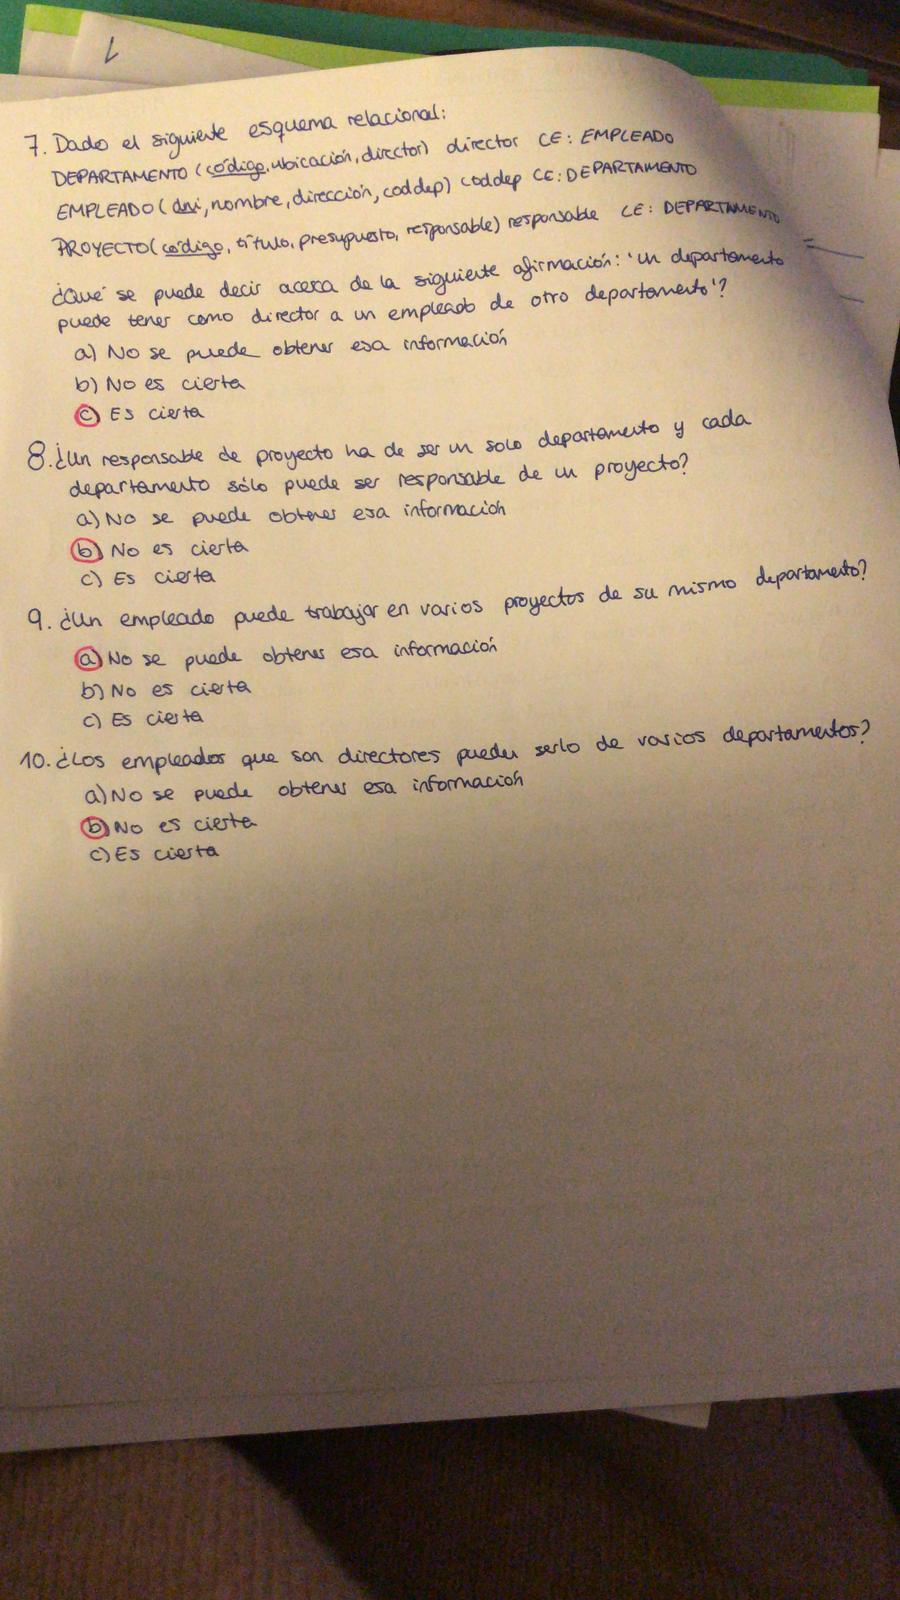 7. Dado el siguiente esquema relacional:
DEPARTAMENTO (código, ubicación, director) director CE: EMPLEADO
EMPLEADO (dni, nombre, dirección, coddep) coddep CE: DEPARTAMENTO
PROYECTO (código, título, presupuesto, responsable) responsable CE: DEPARTAMENTO
¿Qué se puede decir acerca de la siguiente afirmación: 'un departamento
puede tener como director a un empleado de otro departamento'?
a) No se puede obtener esa información
b) No es cierta
c) Es cierta
8. ¿Un responsable de proyecto ha de ser un solo departamento y cada
departamento sólo puede ser responsable de un proyecto?
a) No se puede obtener esa información
b) No es cierta
c) Es cierta
9. ¿Un empleado puede trabajar en varios proyectos de su mismo departamento?
a) No se puede obtener esa información
b) No es cierta
c) Es cierta
10. ¿Los empleados que son directores pueden serlo de varios departamentos?
a) No se puede obtener esa información
b) No es cierta
c) Es cierta